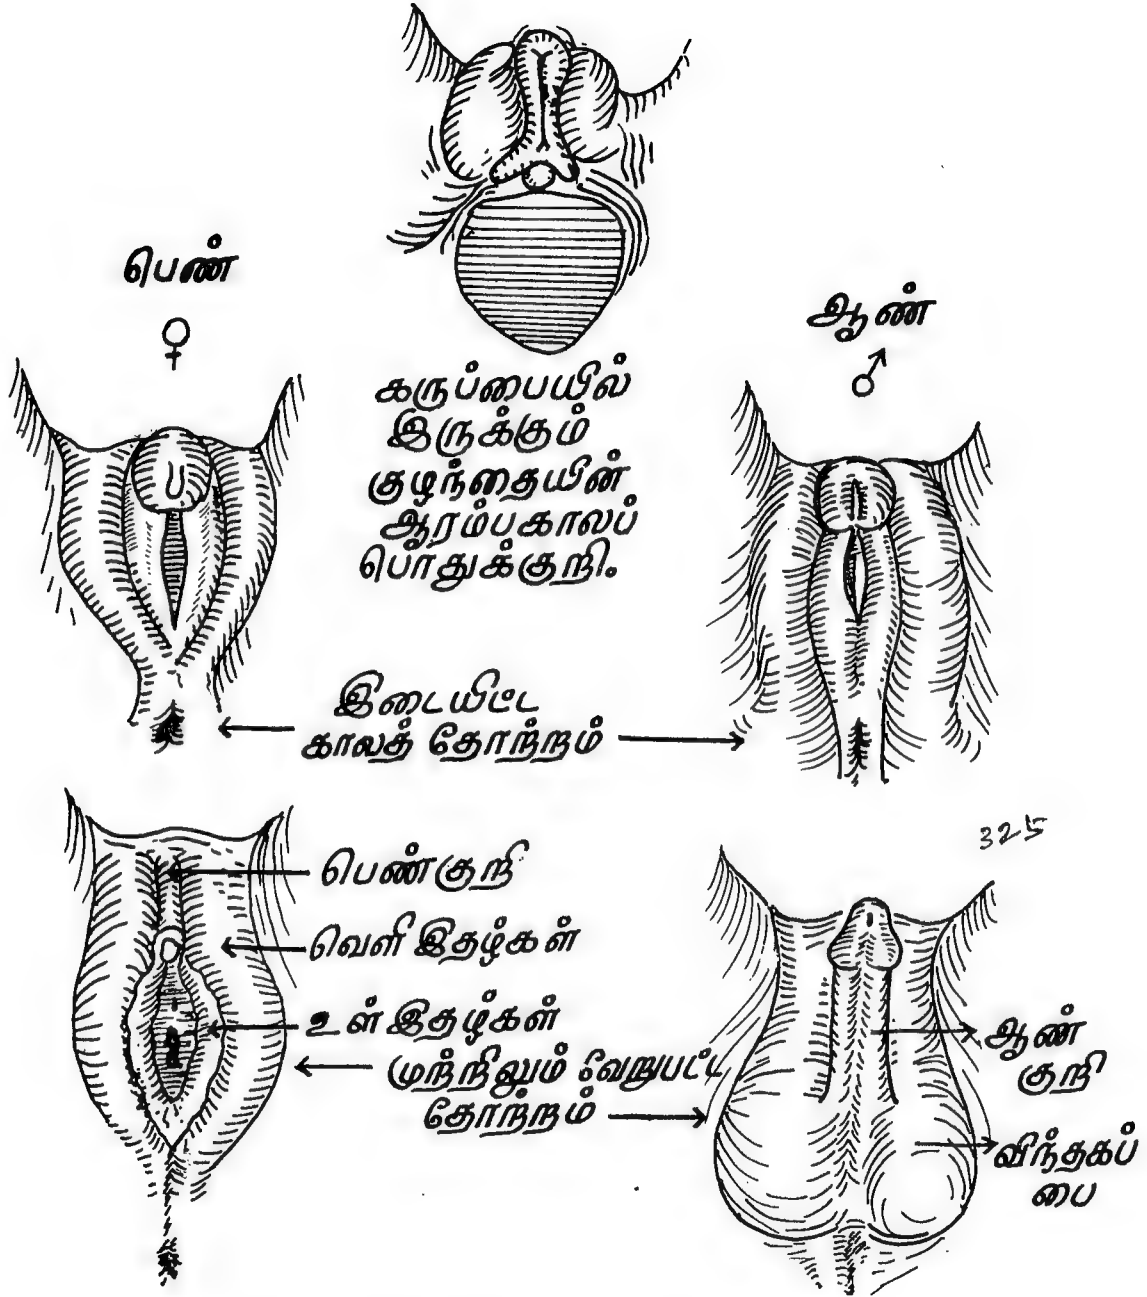 பெண்
♀
ஆண்
♂
கருப்பையில்
இருக்கும்
குழந்தையின்
ஆரம்பகாலப்
பொதுக்குறி.
இடையிட்ட
காலத் தோற்றம்
325
பெண்குறி
வெளி இதழ்கள்
உள் இதழ்கள்
முற்றிலும் வேறுபட்ட
தோற்றம்
ஆண்
குறி
விந்தகப்
பை